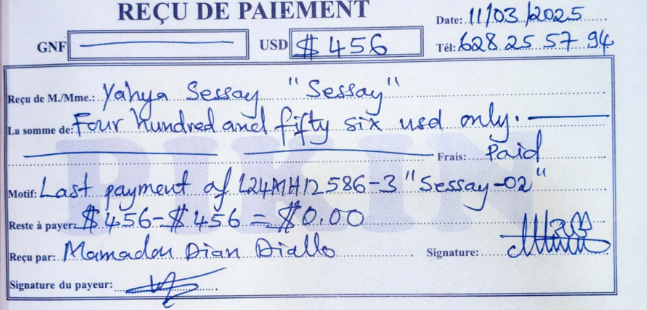 REÇU DE PAIEMENT
Date: 11/03/2025
GNF USD $ 456 Tél: 628 25 57 94
Reçu de M./Mme.: Yahya Sessay "Sessay"
La somme de: Four hundred and fifty six usd only.
Frais: Paid
Motif: Last payment of L24MH12586-3 "Sessay-02"
Reste à payer: $456-$456 = $0.00
Reçu par: Mamadou Dian Diallo Signature:
Signature du payeur:
PIKIN